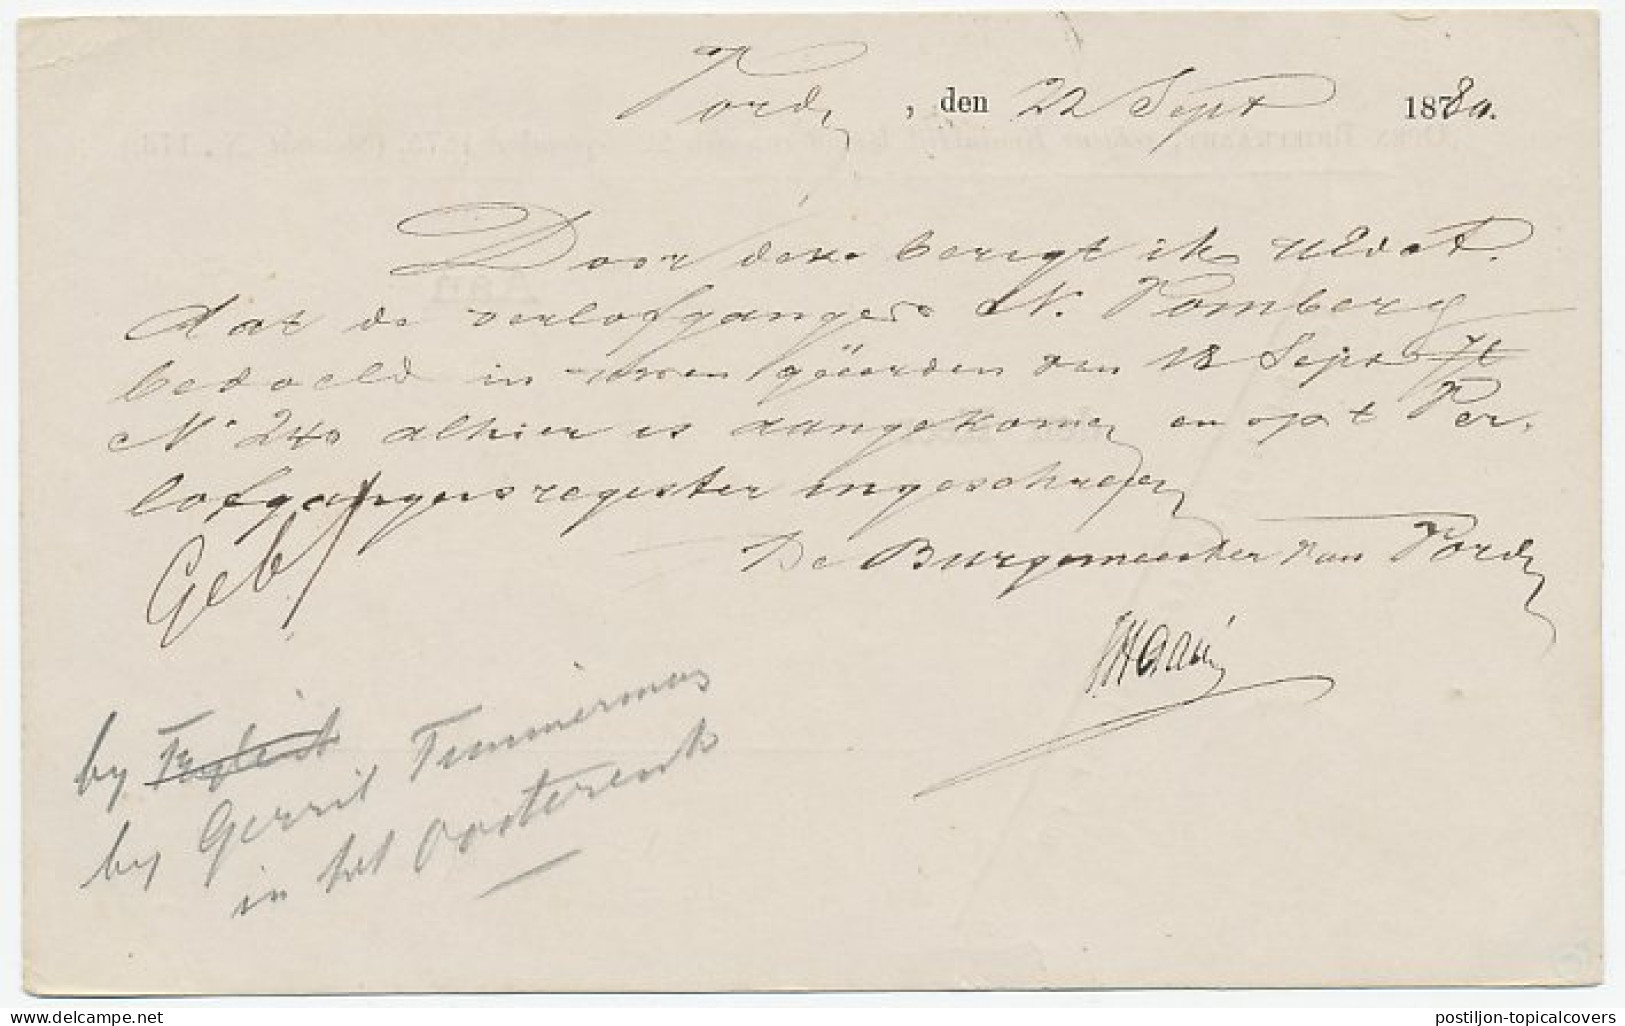 Vorden, den 22 Sept 1880.
Door deze berigt ik UEdAt.
dat de verlofganger N. Pomberg
bedoeld in geëerden van 18 Sept
N° 240 alhier is aangekomen en op t Ver-
lofgangersregister ingeschreven
De Burgemeester van Vorden
Geb
by
by Gerrit Timmerman
in het Oosterenk
www.delcampe.net
postiljon-topicalcovers